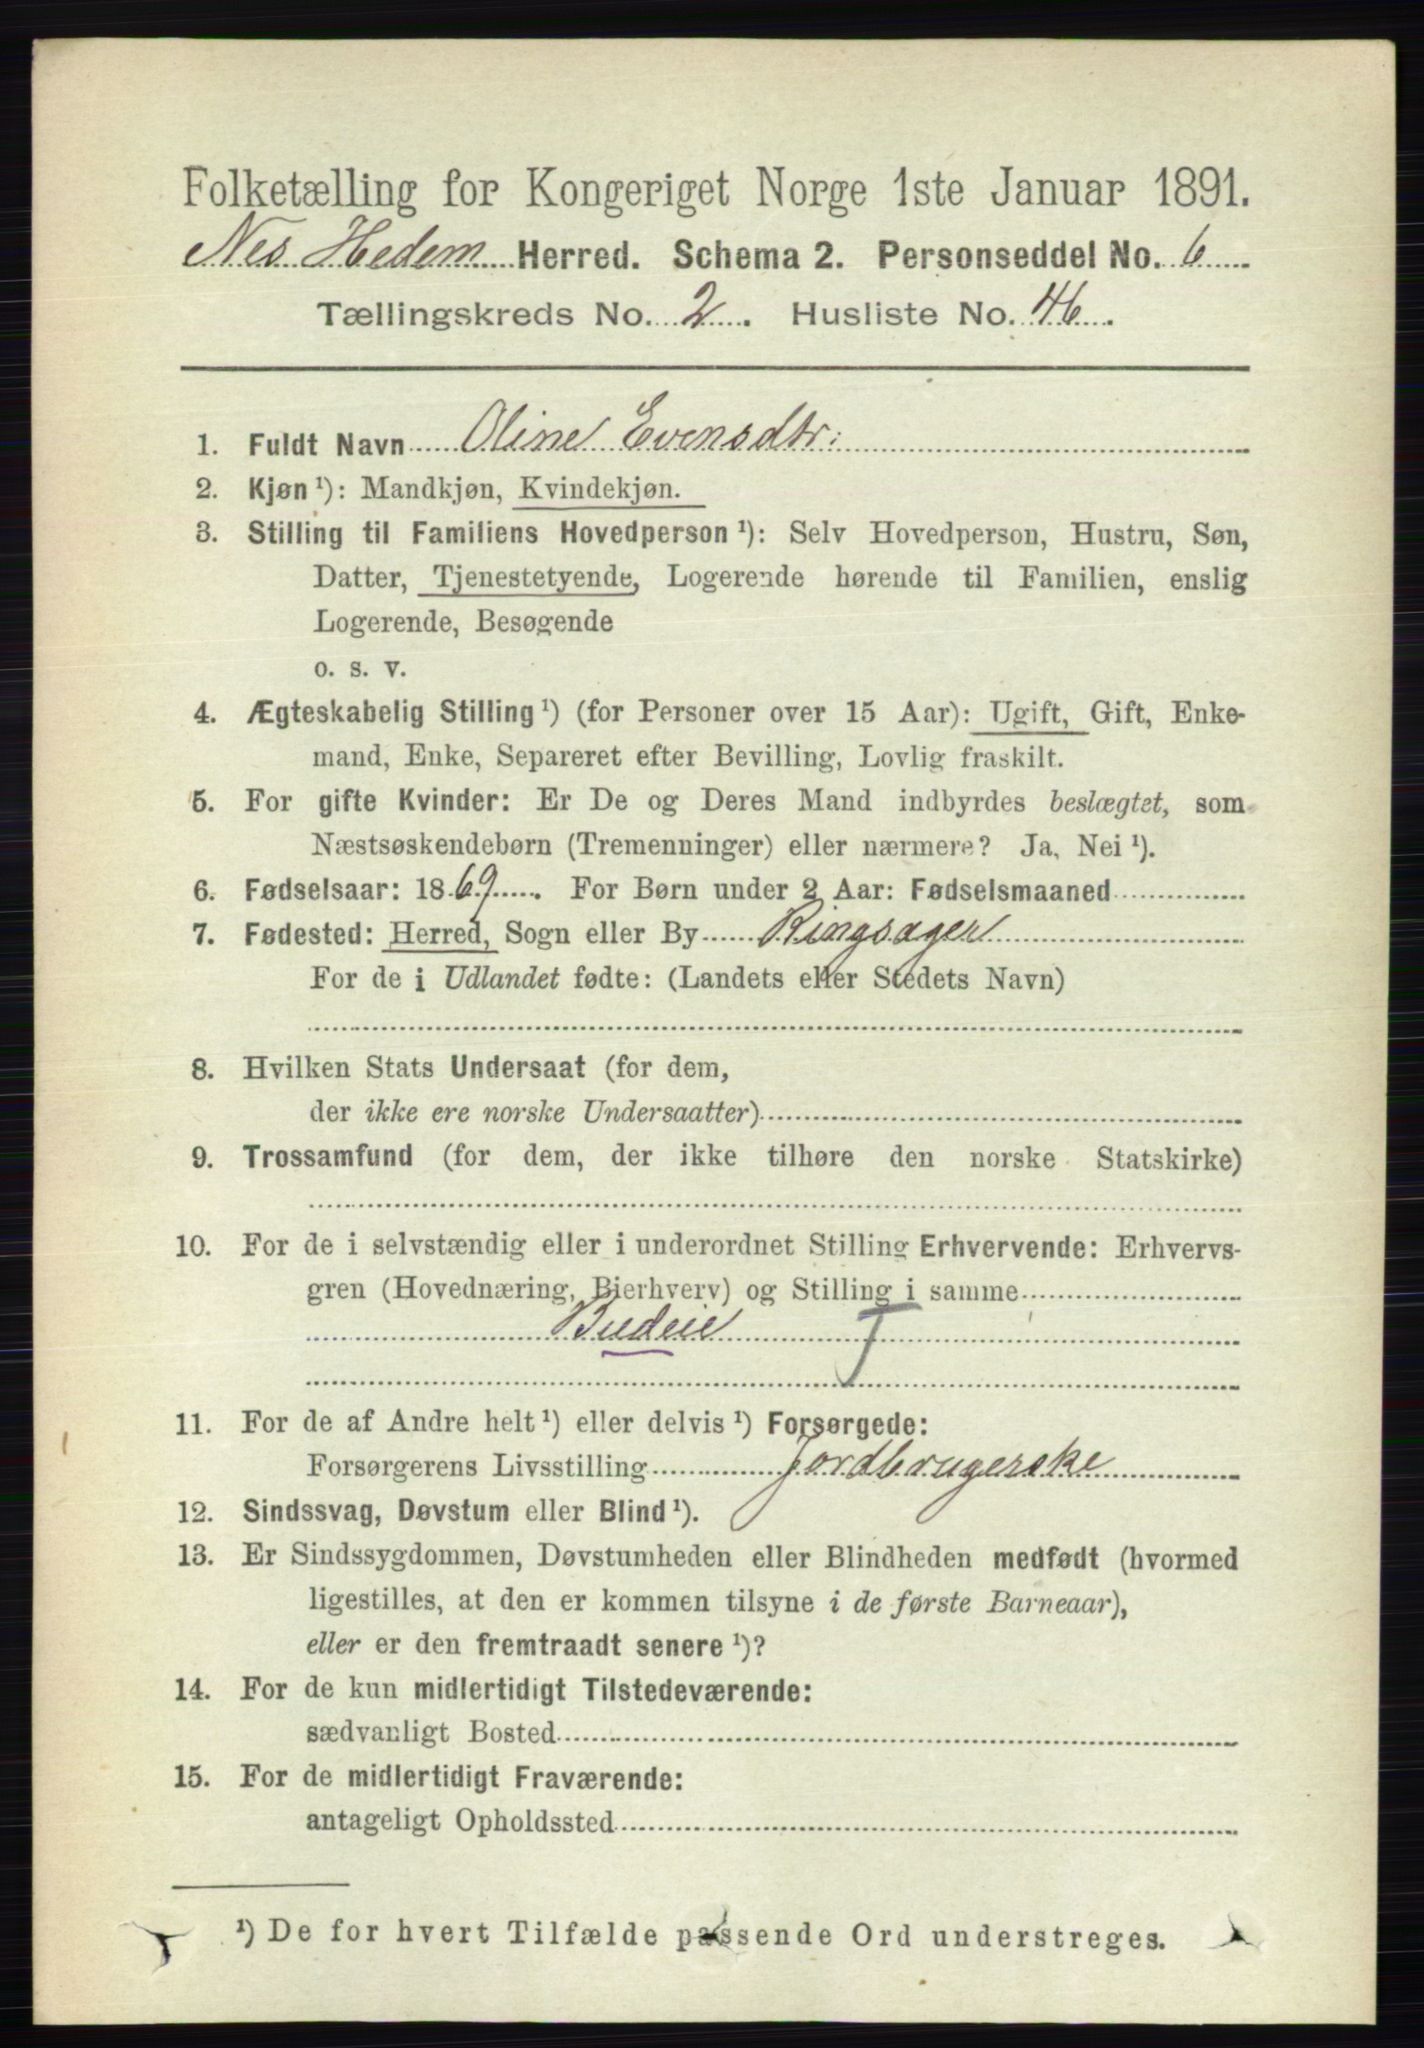 Folketælling for Kongeriget Norge 1ste Januar 1891.
Nes Hedem Herred. Schema 2. Personseddel No. 6
Tællingskreds No. 2. Husliste No. 46.
1. Fuldt Navn Oline Evensdtr:
2. Kjøn ¹): Mandkjøn, Kvindekjøn.
3. Stilling til Familiens Hovedperson ¹): Selv Hovedperson, Hustru, Søn,
Datter, Tjenestetyende, Logerende hørende til Familien, enslig
Logerende, Besøgende
o. s. v.
4. Ægteskabelig Stilling ¹) (for Personer over 15 Aar): Ugift, Gift, Enke-
mand, Enke, Separeret efter Bevilling, Lovlig fraskilt.
5. For gifte Kvinder: Er De og Deres Mand indbyrdes beslægtet, som
Næstsøskendebørn (Tremenninger) eller nærmere? Ja, Nei ¹).
6. Fødselsaar: 1869. For Børn under 2 Aar: Fødselsmaaned
7. Fødested: Herred, Sogn eller By Ringsager
For de i Udlandet fødte: (Landets eller Stedets Navn)
8. Hvilken Stats Undersaat (for dem,
der ikke ere norske Undersaatter)
9. Trossamfund (for dem, der ikke tilhøre den norske Statskirke)
10. For de i selvstændig eller i underordnet Stilling Erhvervende: Erhvervs-
gren (Hovednæring, Bierhverv) og Stilling i samme
Budeie T
11. For de af Andre helt ¹) eller delvis ¹) Forsørgede:
Forsørgerens Livsstilling Jordbrugerske
12. Sindssvag, Døvstum eller Blind ¹).
13. Er Sindssygdommen, Døvstumheden eller Blindheden medfødt (hvormed
ligestilles, at den er kommen tilsyne i de første Barneaar),
eller er den fremtraadt senere ¹)?
14. For de kun midlertidigt Tilstedeværende:
sædvanligt Bosted
15. For de midlertidigt Fraværende:
antageligt Opholdssted
¹) De for hvert Tilfælde passende Ord understreges.